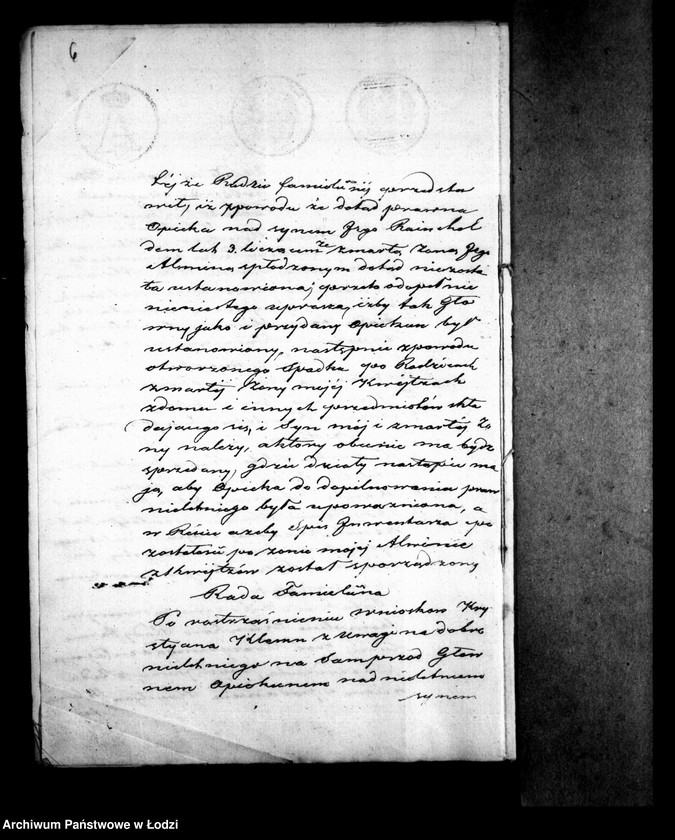 6
téj że Radzie familijnéj przedsta
wił, iż z powodu że dotąd prawna
Opieka nad synem Jego Reinhol
dem lat 3. liczącym ze zmarłą żoną Jego
Alminą spłodzonym dotąd niezosta
ła ustanowioną; przeto o dopełnie
nie niniejszego uprasza, iżby tak Głó
wny jako i przydany Opiekun był
ustanowiony, następnie z powodu
otworzonego Spadku po Rodzicach
zmarłéj Żony mojéj Kwejtzach
z domu i innych przedmiotów skła
dającego się, i Syn mój i zmarłéj Żo
ny należy, a który obecnie ma bydź
sprzedany, gdzie działy nastąpić ma
ją, aby Opieka do dopilnowania praw
nieletniego była upoważniona, a
w Końcu ażeby Spis Inwentarza po
zostałości po żonie mojéj Alminie
z Kwejtzów został sporządzony
Rada Familijna
Po roztrząśnieniu wniosków Kry
styana Klemm z uwagi na dobro
nieletniego na Samprzód Głów
nym Opiekunem nad nieletniem
synem
Archiwum Państwowe w Łodzi